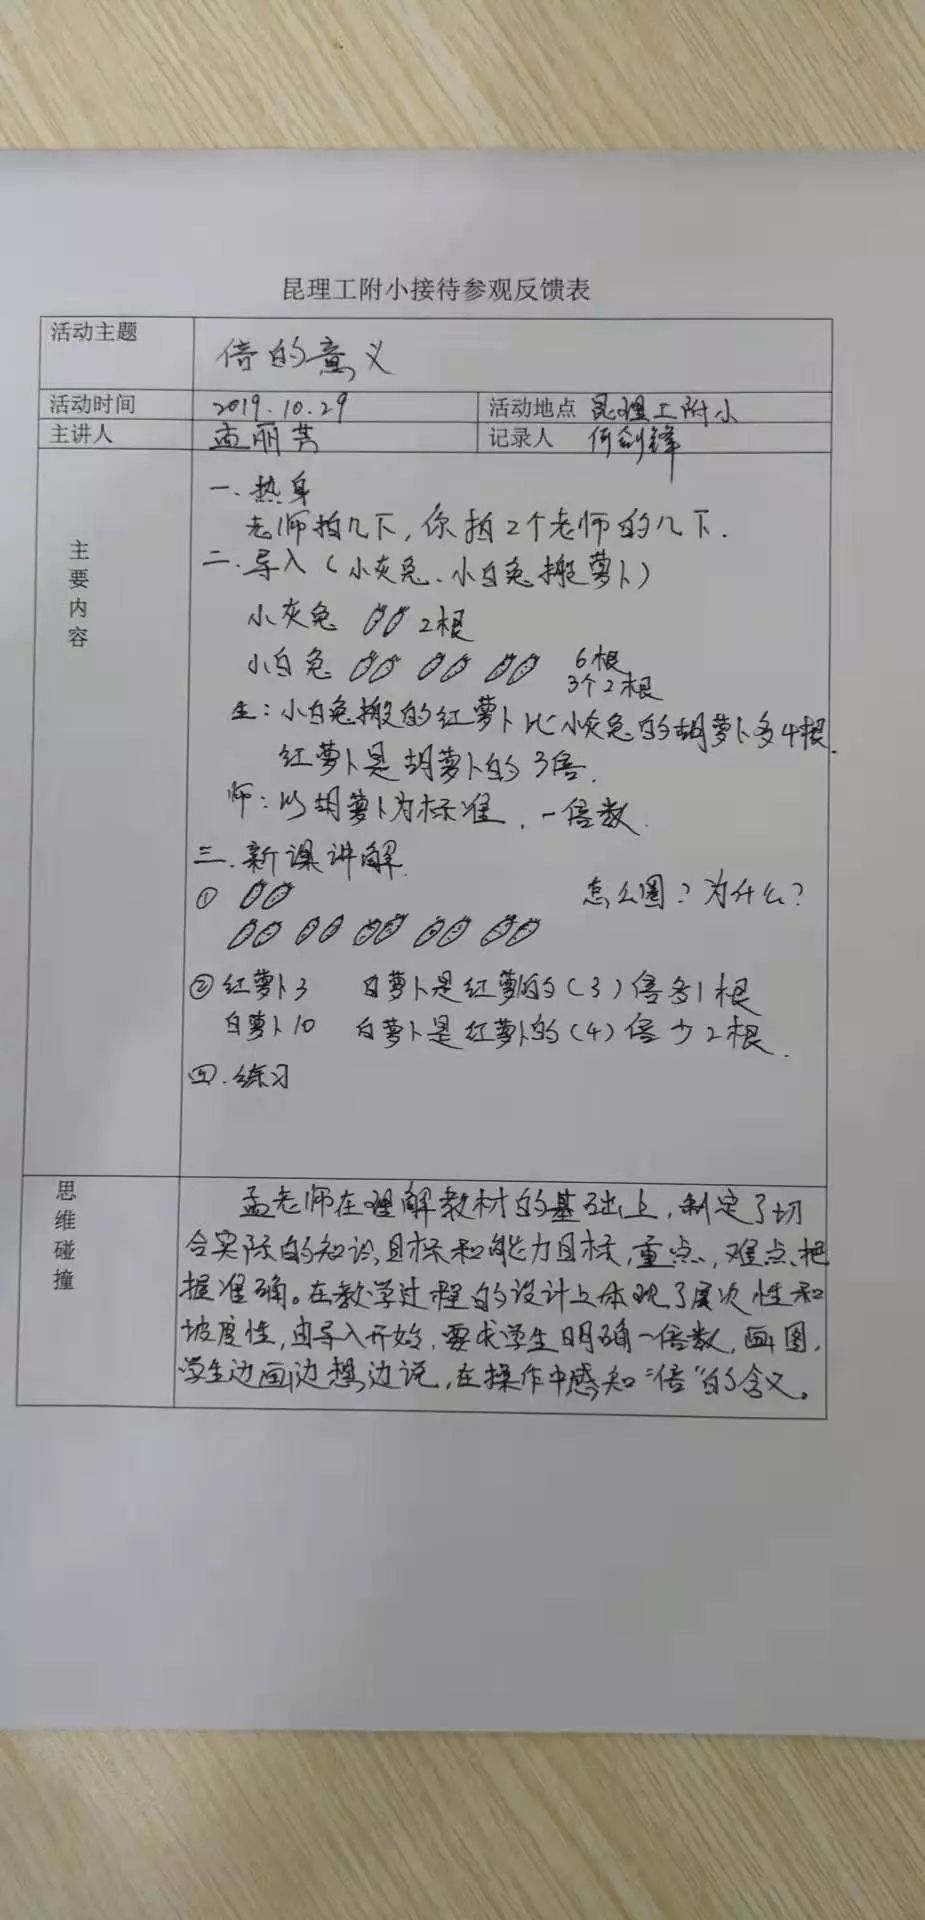 昆理工附小接待参观反馈表
活动主题 倍的意义
活动时间 2019.10.29 活动地点 昆理工附小
主讲人 孟丽芳 记录人 何剑锋
主要内容
一.热身
老师拍几下,你拍2个老师的几下.
二.导入(小灰兔、小白兔搬萝卜)
小灰兔 2根
小白兔 6根
3个2根
生:小白兔搬的红萝卜比小灰兔的胡萝卜多4根.
红萝卜是胡萝卜的3倍.
师:以胡萝卜为标准,一倍数.
三.新课讲解.
① 怎么圈?为什么?
②红萝卜3 白萝卜是红萝卜的(3)倍多1根
白萝卜10 白萝卜是红萝卜的(4)倍少2根.
四.练习
思维碰撞
孟老师在理解教材的基础上,制定了切
合实际的知识,目标和能力目标,重点,难点把
握准确。在教学过程的设计上体现了层次性和
坡度性,由导入开始,要求学生明确一倍数,画图,
学生边画边想边说,在操作中感知“倍”的含义。